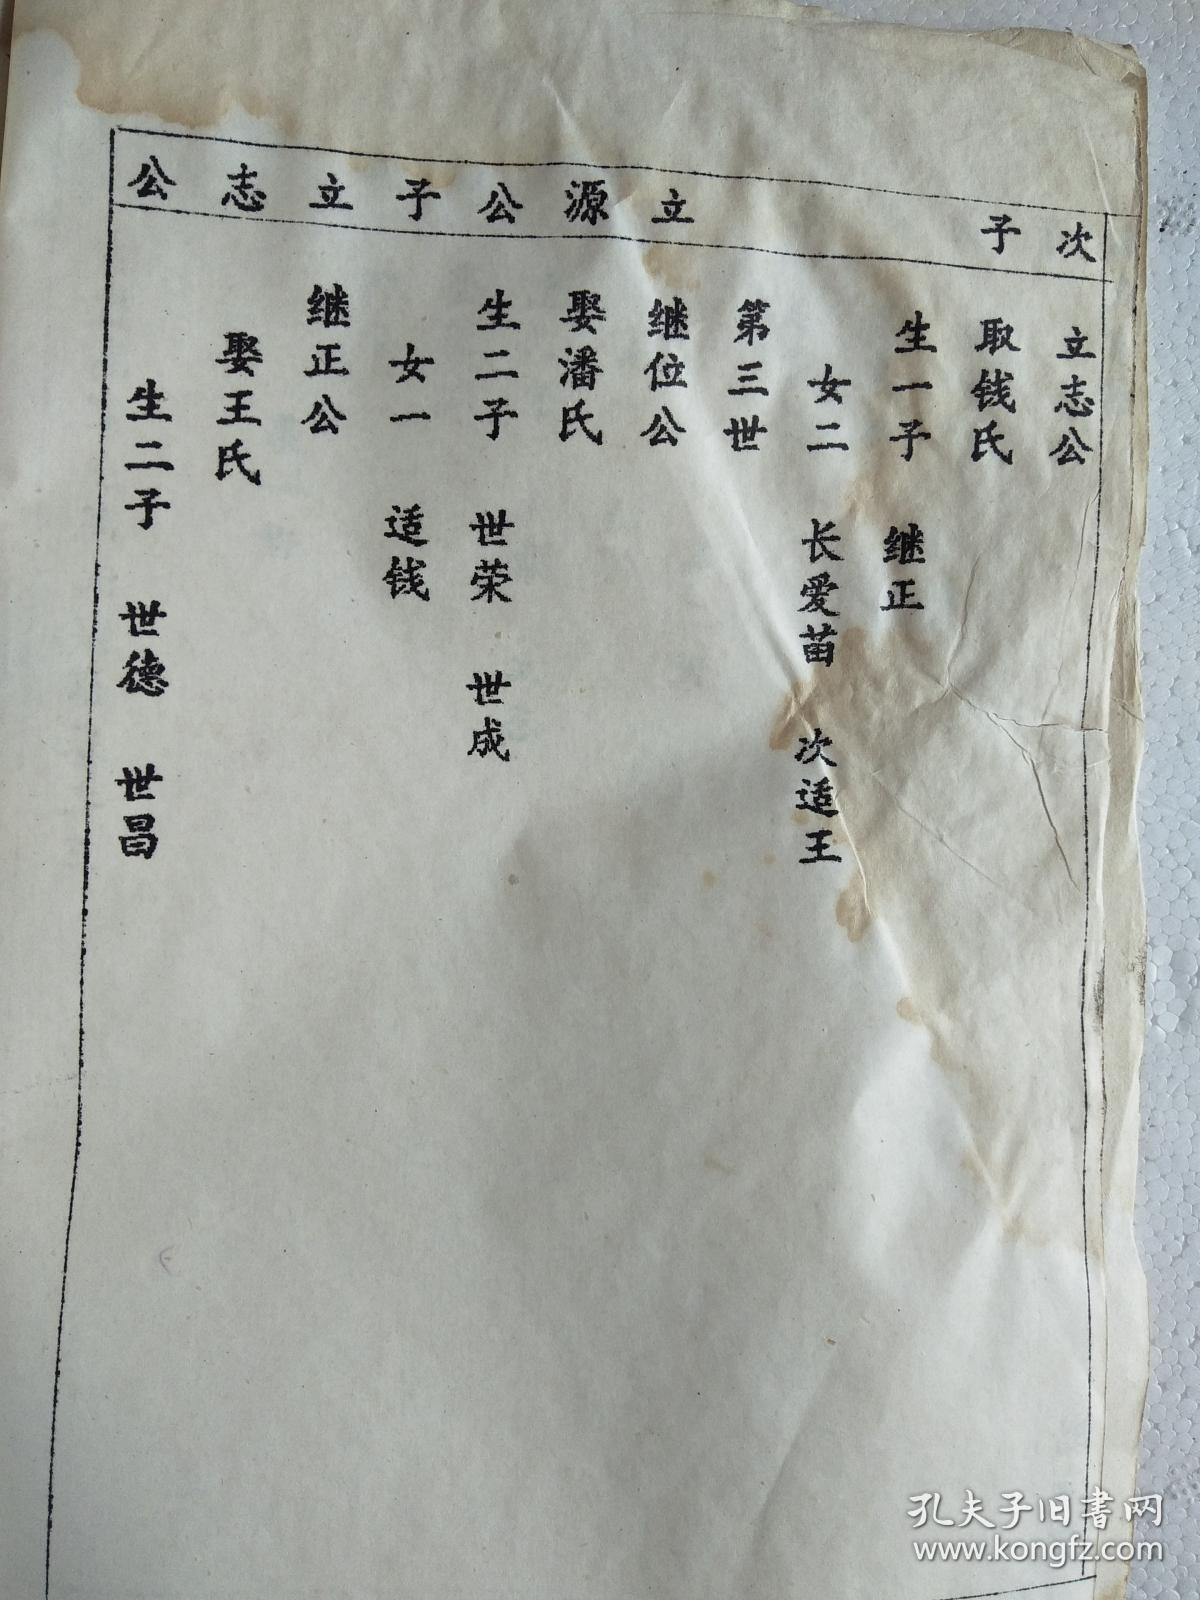 次子 立源公子 立志公
立志公
取钱氏
生一子 继正
女二 长爱苗 次适王
第三世
继位公
娶潘氏
生二子 世荣 世成
女一 适钱
继正公
娶王氏
生二子 世德 世昌
孔夫子旧书网
www.kongfz.com